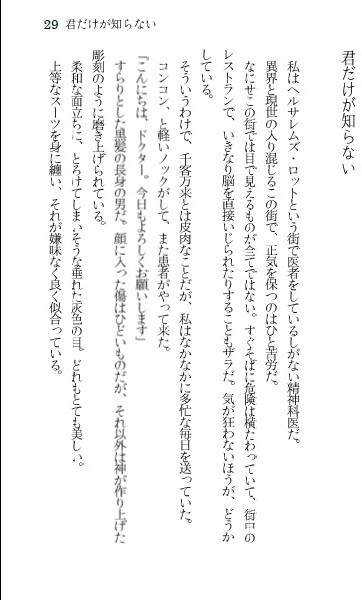 29 君だけが知らない
君だけが知らない
私はヘルサレムズ・ロットという街で医者をしているしがない精神科医だ。
異界と現世の入り混じるこの街で、正気を保つのはひと苦労だ。
なにせこの街では目で見えるものが全てではない。すぐそばに危険は横たわっていて、街中の
レストランで、いきなり脳を直接いじられたりすることもザラだ。気が狂わないほうが、どうか
している。
そういうわけで、千客万来とは皮肉なことだが、私はなかなかに多忙な毎日を送っていた。
コンコン、と軽いノックがして、また患者がやって来た。
「こんにちは、ドクター。今日もよろしくお願いします」
すらりとした黒髪の長身の男だ。顔に入った傷はひどいものだが、それ以外は神が作り上げた
彫刻のように磨き上げられている。
柔和な面立ちに、とろけてしまいそうな垂れた灰色の目。どれもとても美しい。
上等なスーツを身に纏い、それが嫌味なく良く似合っている。